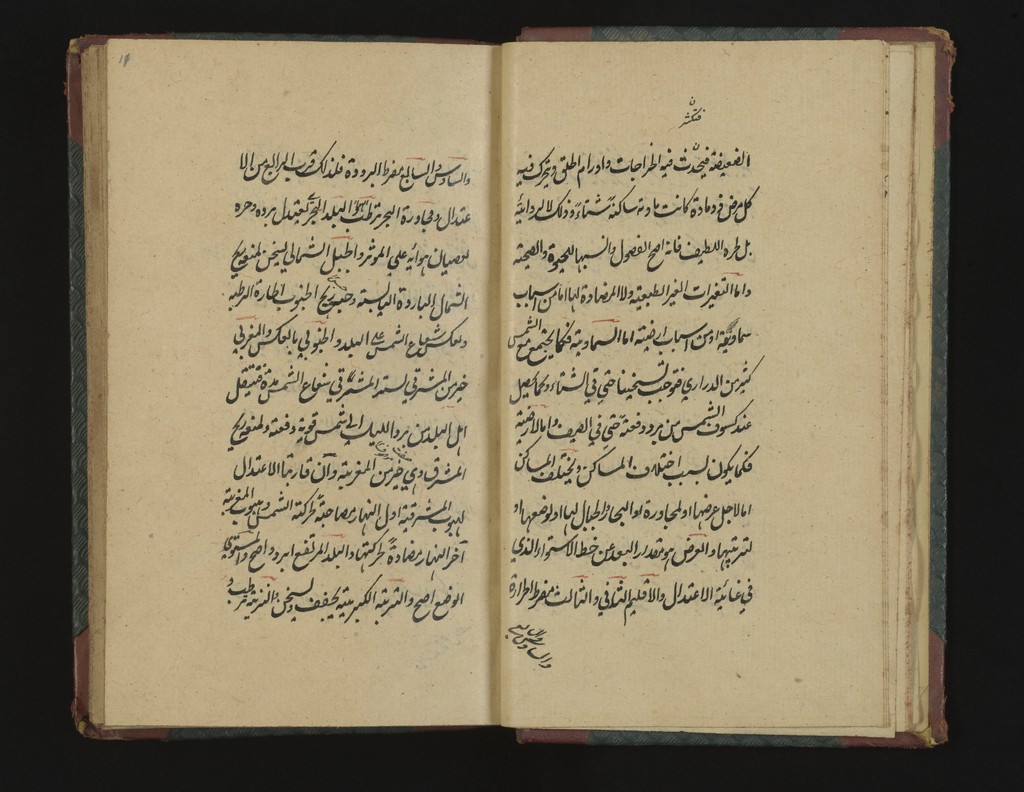 فتكثر
الضعيفة فيحدث فيه الخراجات واورام الحلق ويتحرك فيه
كل مرض ذي مادة كانت مادته ساكنة شتاءً وذلك لا لردائته
بل طره اللطيف فانه اصح الفصول وانسبها للحيوة والصحة
واما التغيرات الغير الطبيعية ولا المضادة لها اما من اسباب
سماوية او من اسباب ارضية اما السماوية فكما يجتمع مع الشمس
كثير من الدراري فتوجب تسخينا حتى في الشتاء وكما يحصل
عند كسوف الشمس من برد دفعة حتى في الصيف واما الارضية
فكما يكون بسبب اختلاف المساكن ويختلف المساكن
اما لاجل عرضها او لمجاورة البحار او الجبال لها او لوضعها او
لتربتها والعرض هو مقدار البعد عن خط الاستواء الذي
في غاية الاعتدال والاقليم الثاني والثالث مفرط الحرارة
والسادس والسابع
والسادس والسابع مفرط البرودة فلذلك قرب الرابع من الا
عتدال ومجاورة البحر ترطب البلد البحري يعتدل برده وحره
لعصيان هوائه على المؤثر والجبل الشمالي يسخن لمنعه ريح
الشمال الباردة اليابسة وحبسه ريح الجنوب الحارة الرطبة
وبعكس شعاع الشمس على البلد والجنوبي بالعكس والمغربي
خير من المشرقي لستر المشرقي شعاع الشمس مدة فينتقل
اهل البلد من برد الليل الى شمس قوية دفعة ولمنعه ريح
المشرق وهي خير من المغربية وان قاربتا الاعتدال
لهبوب المشرقية اول النهار مصاحبة لحركة الشمس وهبوب المغربية
آخر النهار مضادةً لحركتها والبلد المرتفع ابرد واصح والمستوي
الوضع اصح والتربة الكبريتية تجفف وتسخن والنزية ترطب و